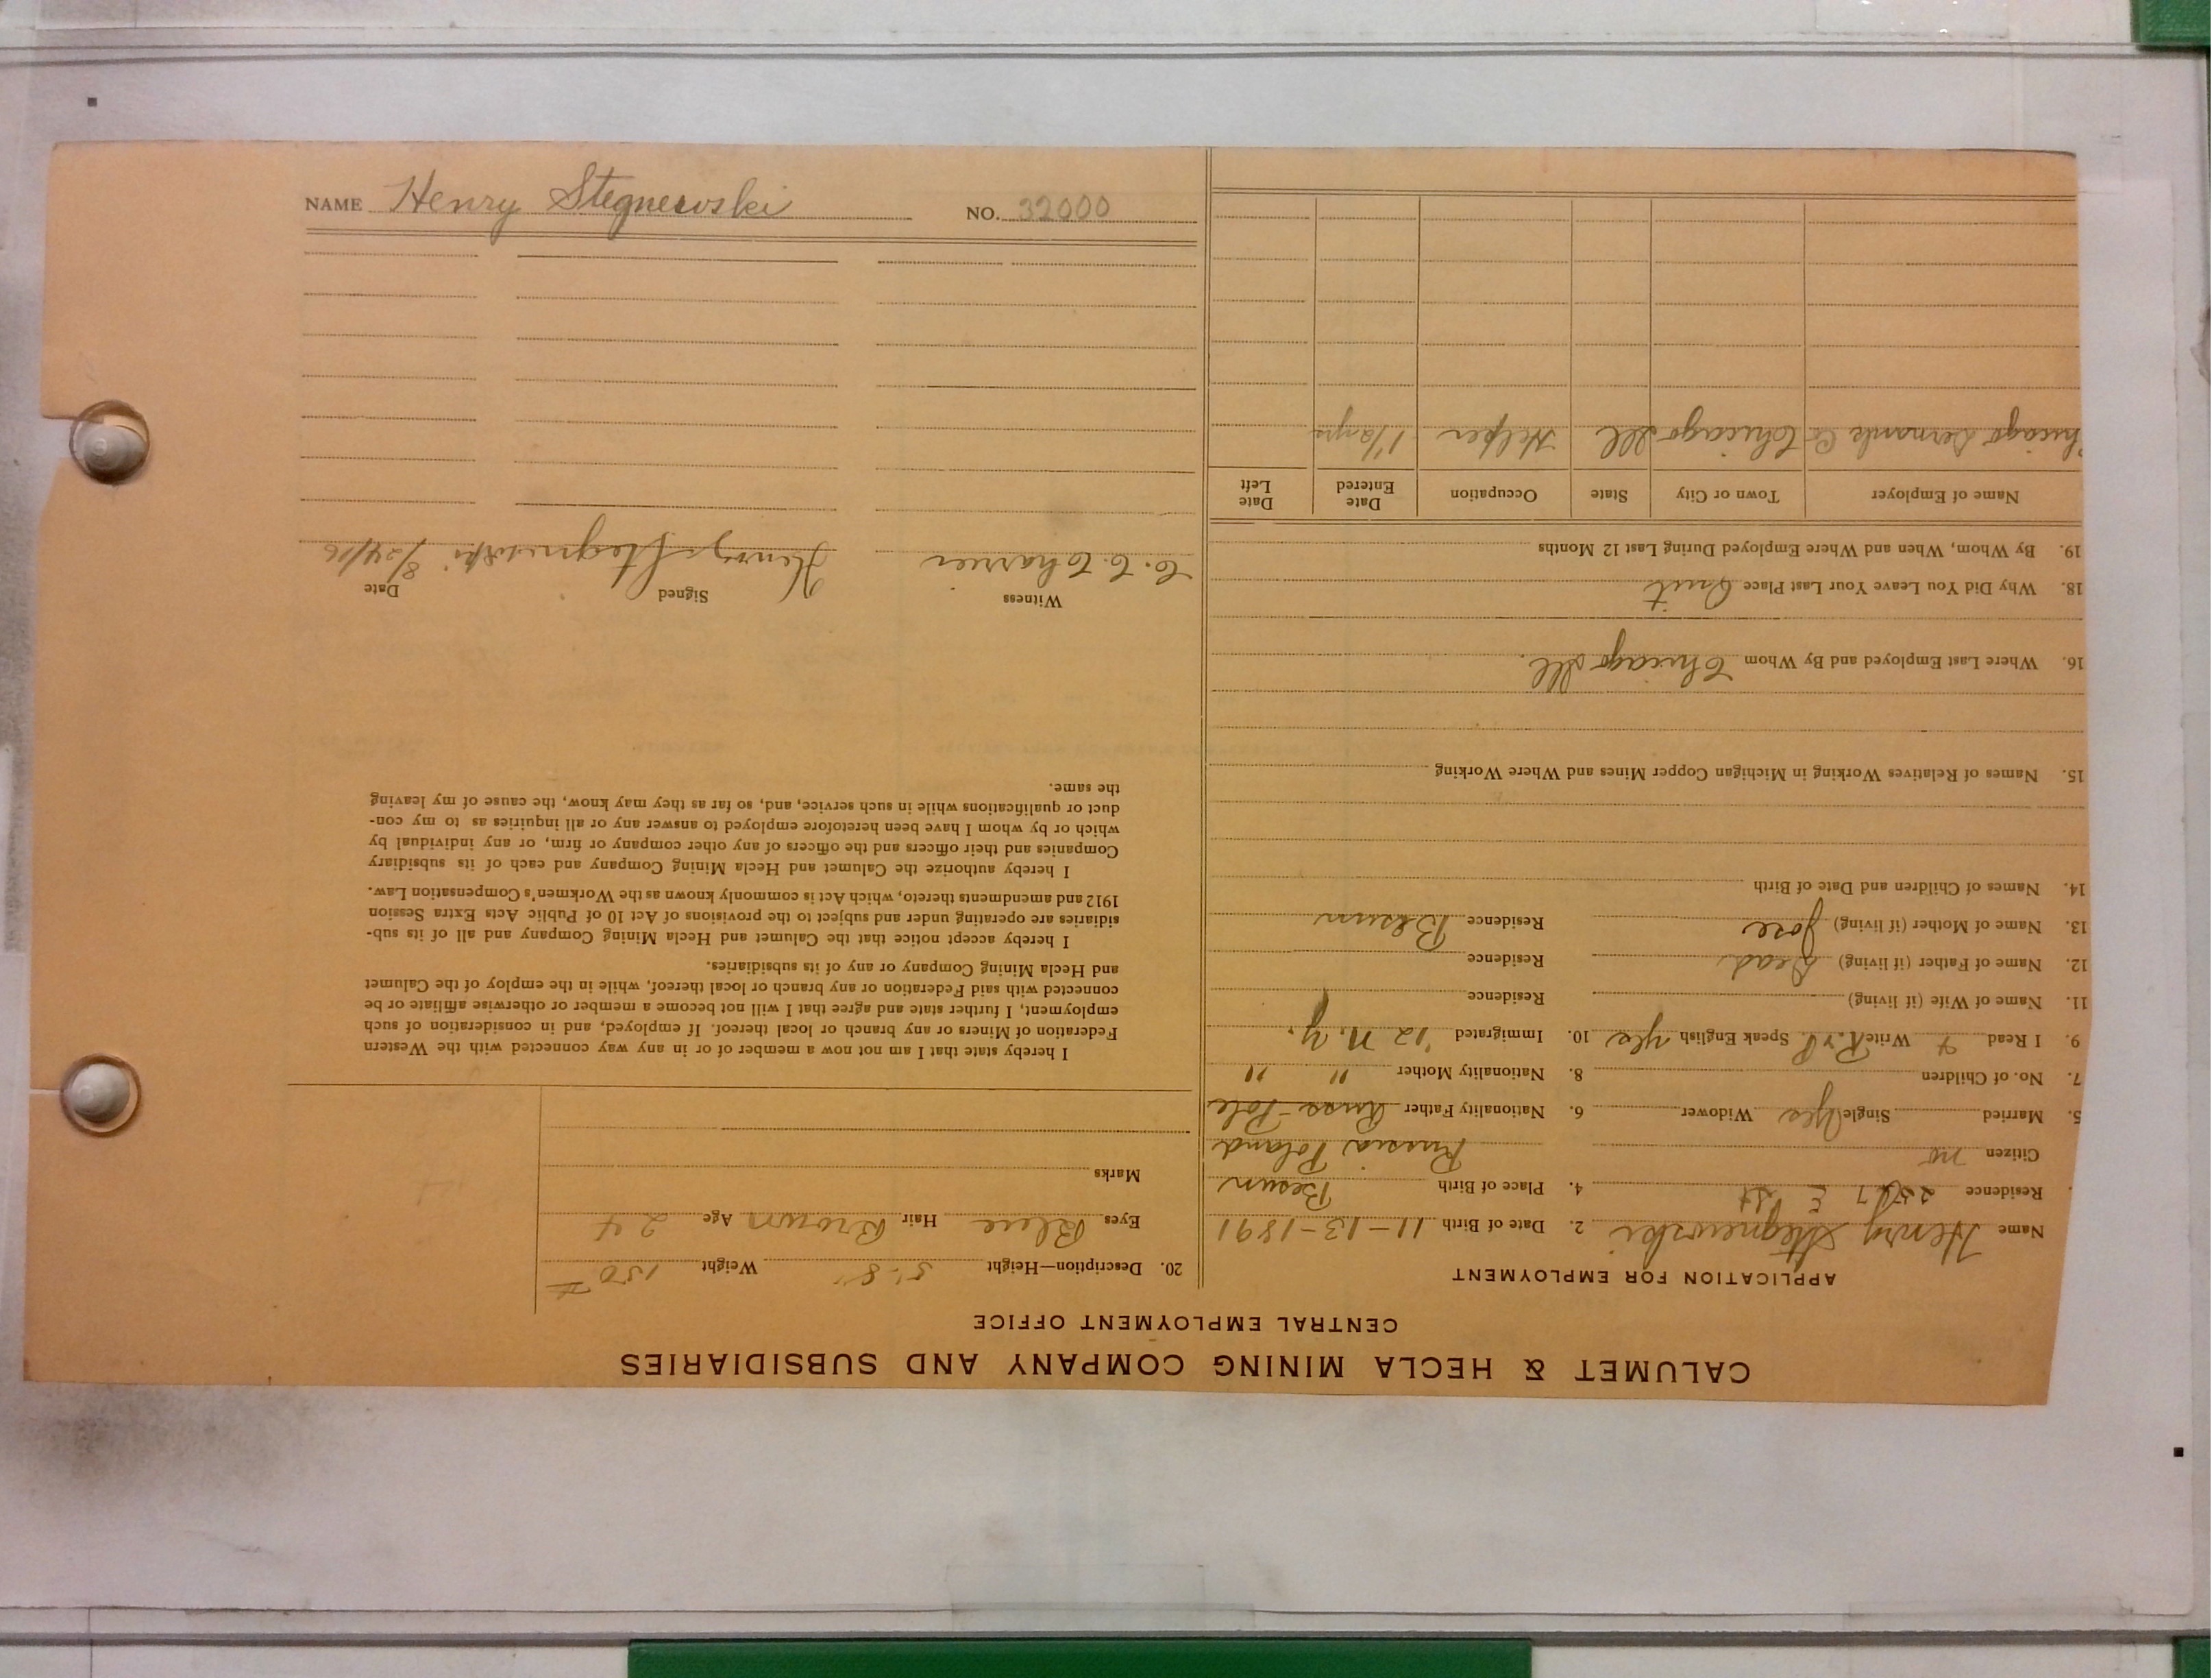 NAME Henry Stegnewski NO. 32000
CALUMET & HECLA MINING COMPANY AND SUBSIDIARIES
CENTRAL EMPLOYMENT OFFICE
APPLICATION FOR EMPLOYMENT
Name Henry Stegnewski 2. Date of Birth 11-13-1891
Residence E St 4. Place of Birth Besun
Citizen no Russia Poland
5. Married Single Yes Widower 6. Nationality Father Russ-Pole
7. No. of Children 8. Nationality Mother " "
9. I Read Write R & P. Speak English yes 10. Immigrated '12 N.Y.
11. Name of Wife (if living) Residence
12. Name of Father (if living) Dead Residence
13. Name of Mother (if living) Jose Residence Besun
14. Names of Children and Date of Birth
15. Names of Relatives Working in Michigan Copper Mines and Where Working
16. Where Last Employed and By Whom Chicago Ill.
18. Why Did You Leave Your Last Place Quit
19. By Whom, When and Where Employed During Last 12 Months
Name of Employer Town or City State Occupation Date Entered Date Left
Chicago Co Chicago Ill Helper
20. Description—Height 5'-8" Weight 150 #
Eyes Blue Hair Brown Age 24
Marks
I hereby state that I am not now a member of or in any way connected with the Western
Federation of Miners or any branch or local thereof. If employed, and in consideration of such
employment, I further state and agree that I will not become a member or otherwise affiliate or be
connected with said Federation or any branch or local thereof, while in the employ of the Calumet
and Hecla Mining Company or any of its subsidiaries.
I hereby accept notice that the Calumet and Hecla Mining Company and all of its sub-
sidiaries are operating under and subject to the provisions of Act 10 of Public Acts Extra Session
1912 and amendments thereto, which Act is commonly known as the Workmen's Compensation Law.
I hereby authorize the Calumet and Hecla Mining Company and each of its subsidiary
Companies and their officers and the officers of any other company or firm, or any individual by
which or by whom I have been heretofore employed to answer any or all inquiries as to my con-
duct or qualifications while in such service, and, so far as they may know, the cause of my leaving
the same.
Witness Signed Date
C. C. Charrier Henry Stegnewski 8/24/16